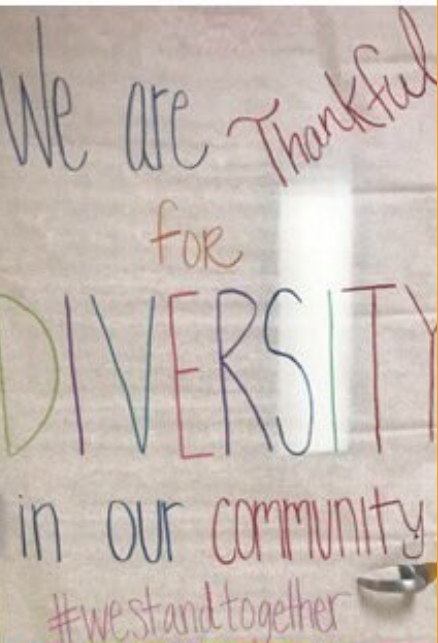 We are Thankful
for
DIVERSITY
in our community
#westandtogether